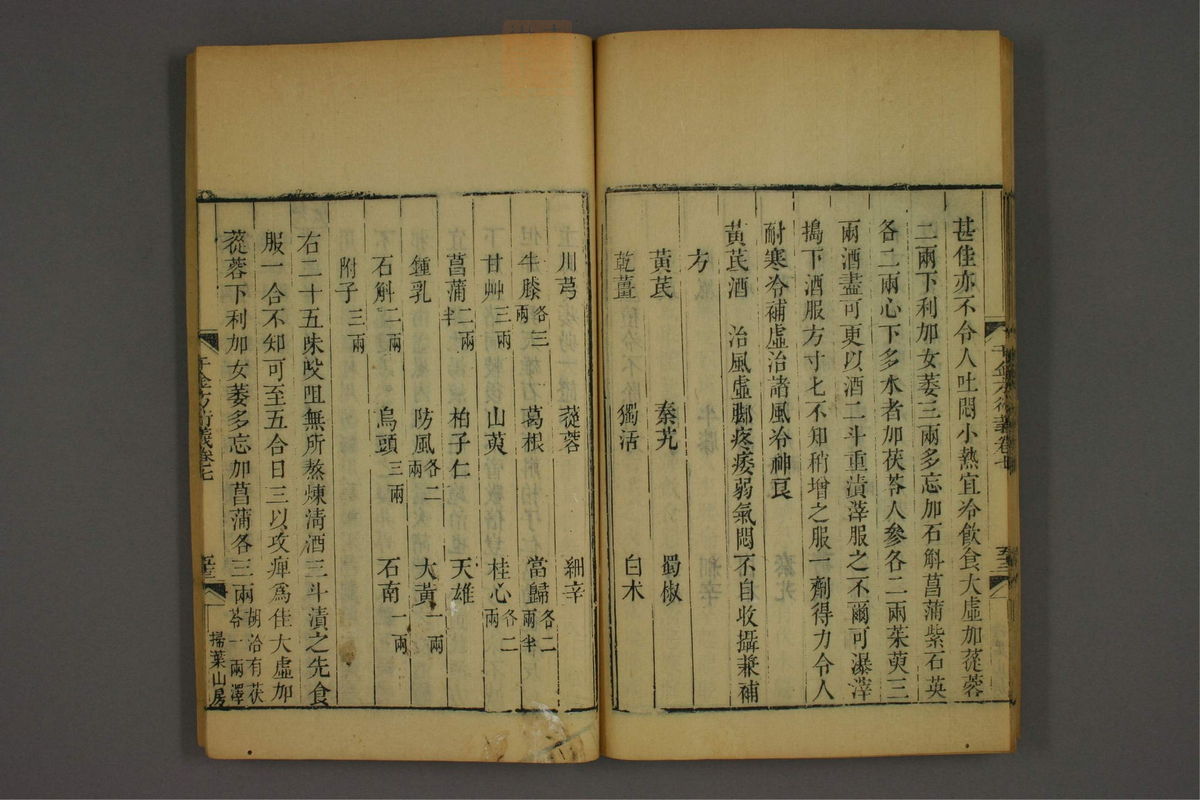 甚佳亦不令人吐悶小熱宜冷飲食大虛加蓯蓉
二兩下利加女萎三兩多忘加石斛菖蒲紫石英
各二兩心下多水者加茯苓人參各二兩茱萸三
兩酒盡可更以酒二斗重漬滓服之不爾可瀑滓
搗下酒服方寸七不知稍增之服一劑得力令人
耐寒冷補虛治諸風冷神良
黃芪酒 治風虛脚疼痿弱氣悶不自收攝兼補
方
黃芪 秦艽 蜀椒
乾薑 獨活 白朮
川芎 蓯蓉 細辛
牛膝各三兩 葛根 當歸各二兩半
甘艸三兩 山萸 桂心各二兩
菖蒲二兩半 柏子仁 天雄
鍾乳 防風各二兩 大黃一兩
石斛二兩 烏頭三兩 石南一兩
附子三兩
右二十五味㕮咀無所熬煉淸酒三斗漬之先食
服一合不知可至五合日三以攻痺爲佳大虛加
蓯蓉下利加女萎多忘加菖蒲各三兩胡洽有茯苓一兩澤
千金方衍義卷七
掃葉山房